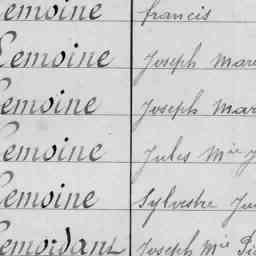 Lemoine francis
Lemoine Joseph Marie
Lemoine Joseph Mar
Lemoine Jules Mie J
Lemoine Sylvestre Ju
Lemordant Joseph Mie Pie